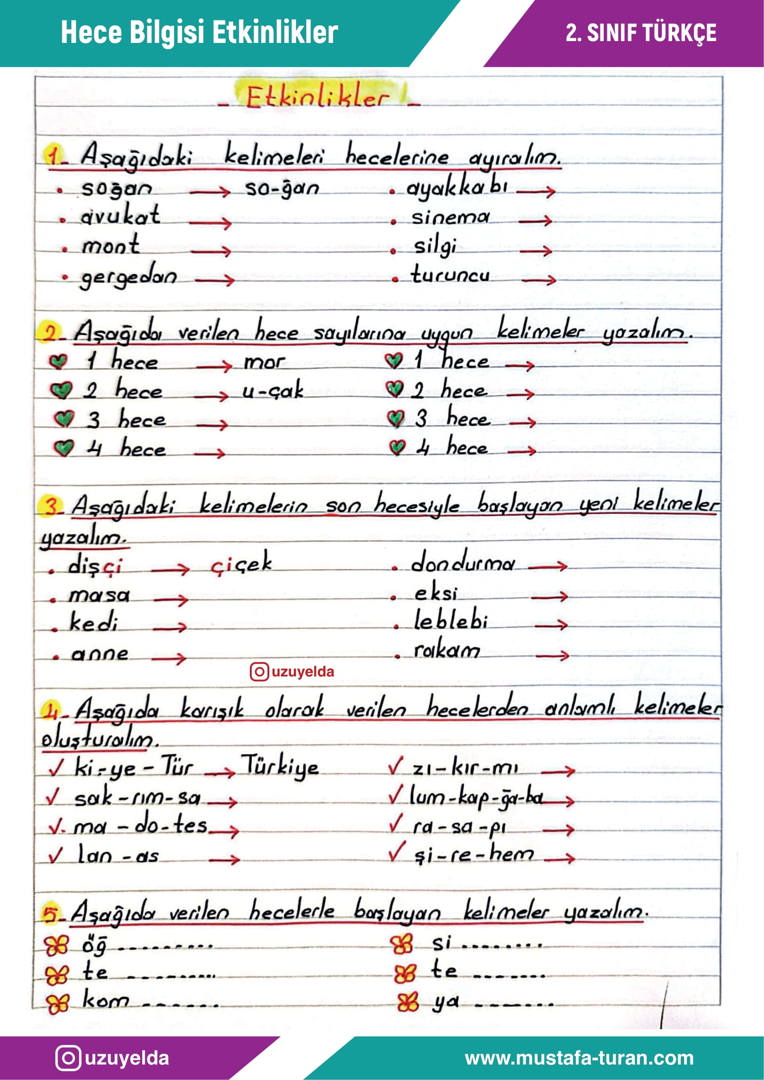 Hece Bilgisi Etkinlikler
2. SINIF TÜRKÇE
- Etkinlikler -
1- Aşağıdaki kelimeleri hecelerine ayıralım.
• soğan → so-ğan • ayakkabı →
• avukat → • sinema →
• mont → • silgi →
• gergedan → • turuncu →
2- Aşağıda verilen hece sayılarına uygun kelimeler yazalım.
1 hece → mor 1 hece →
2 hece → u-çak 2 hece →
3 hece → 3 hece →
4 hece → 4 hece →
3- Aşağıdaki kelimelerin son hecesiyle başlayan yeni kelimeler
yazalım.
• dişçi → çiçek • dondurma →
• masa → • eksi →
• kedi → • leblebi →
• anne → • rakam →
uzuyelda
4- Aşağıda karışık olarak verilen hecelerden anlamlı kelimeler
oluşturalım.
✓ ki-ye-Tür → Türkiye ✓ zı-kır-mı →
✓ sak-rım-sa → ✓ lum-kap-ğa-ba →
✓ ma-do-tes → ✓ ra-sa-pı →
✓ lan-as → ✓ şi-re-hem →
5- Aşağıda verilen hecelerle başlayan kelimeler yazalım.
öğ ......... si ........
te ......... te .......
kom ....... ya .......
uzuyelda
www.mustafa-turan.com